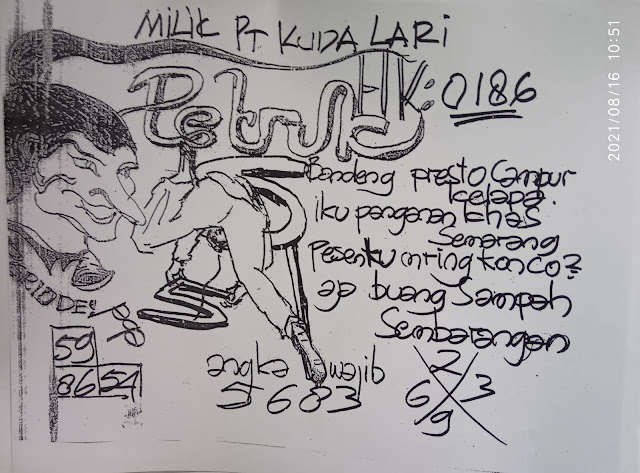 MILIK PT KUDA LARI
Petruk
HK: 0186
Bandeng presto Campur
kelapa.
iku panganan khas
Semarang
Pesenku mring konco2
ajo buang Sampah
Sembarangan
59
86 54
angka wajib
5 6 8 3
2
6 3
9
2021/08/16 10:51